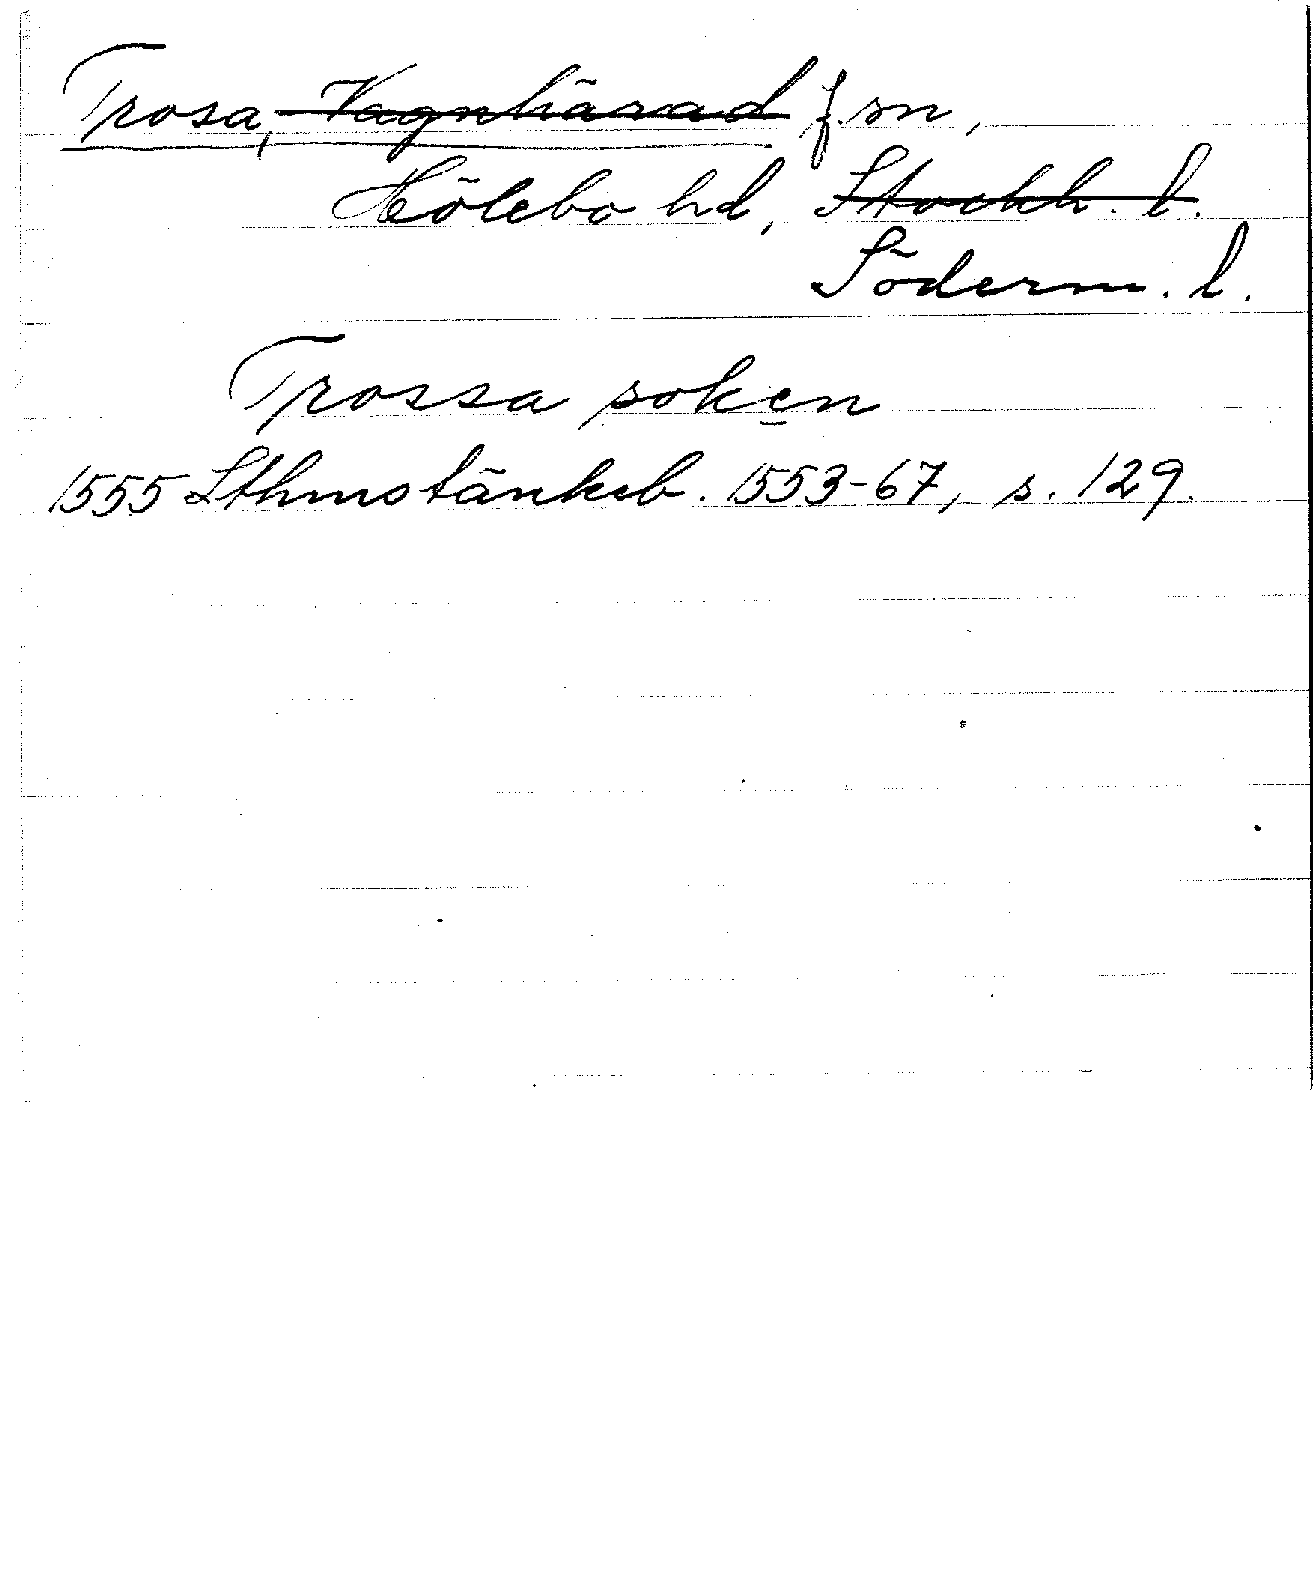 Trosa, Vagnhärad f sn,
Hölebo hd, Stockh. l.
Söderm. l.
Trossa soken
1555 Sthmstänkeb. 1553-67, s. 129.